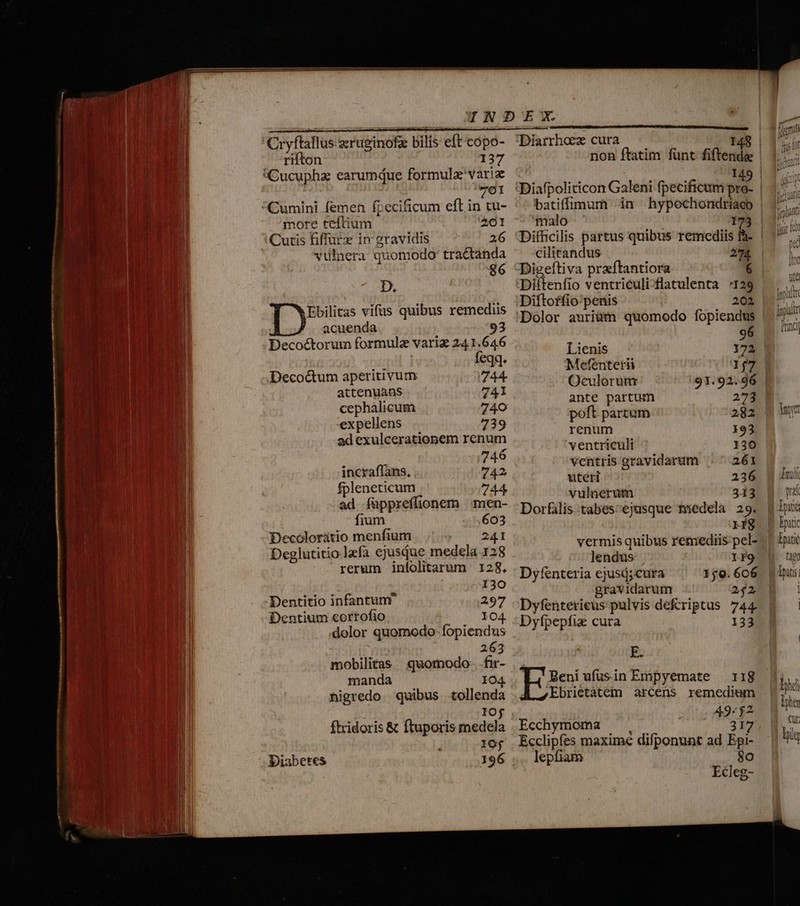 INDEX.
Cryſtallus æruginoſæ bilis eſt copo-
riſton 137
Cucuphæ earumque formulæ variæ
701
Cumini ſemen ſpecificum eſt in tu-
more teſtium 201
Cutis fiſſuræ in gravidis 26
vulnera quomodo tractanda
86
D.
DEbilitas viſus quibus remediis
acuenda 93
Decoctorum formulæ variæ 241.646
ſeqq.
Decoctum aperitivum 744
attenuans 741
cephalicum 740
expellens 739
ad exulcerationem renum
746
incraſſans. 742
ſpleneticum 744
ad ſuppreſſionem men-
ſium 603
Decoloratio menſium 241
Deglutitio læſa ejusque medela 128
rerum inſolitarum 128.
130
Dentitio infantum 297
Dentium corroſio 104
dolor quomodo ſopiendus
263
mobilitas quomodo fir-
manda 104
nigredo quibus tollenda
105
ſtridoris & ſtuporis medela
105
Diabetes 196
Diarrhoeæ cura 148
non ſtatim ſunt ſiſtendæ
149
Diaſpoliticon Galeni ſpecificum pro-
batiſſimum in hypochondriaco
malo 173
Difficilis partus quibus remediis fa-
cilitandus 274
Digeſtiva præſtantiora 6
Diſtenſio ventriculi flatulenta 129
Diſtorſio penis 202
Dolor aurium quomodo ſopiendus
96
Lienis 172
Meſenterii 157
Oculorum 91.92.96
ante partum 273
poſt partum 282
renum 193
ventriculi 130
ventris gravidarum 261
uteri 236
vulnerum 313
Dorſalis tabes ejusque medela 29.
118
vermis quibus remediis pel-
lendus 119
Dyſenteria ejusq; cura 150.606
gravidarum 252
Dyſentericus pulvis deſcriptus 744
Dyſpepſiæ cura 133
E.
EBeni uſus in Empyemate 118
Ebrietatem arcens remedium
49.52
Ecchymoma 317
Ecclipſes maxime diſponunt ad Epi-
lepſiam 80
Ecleg-